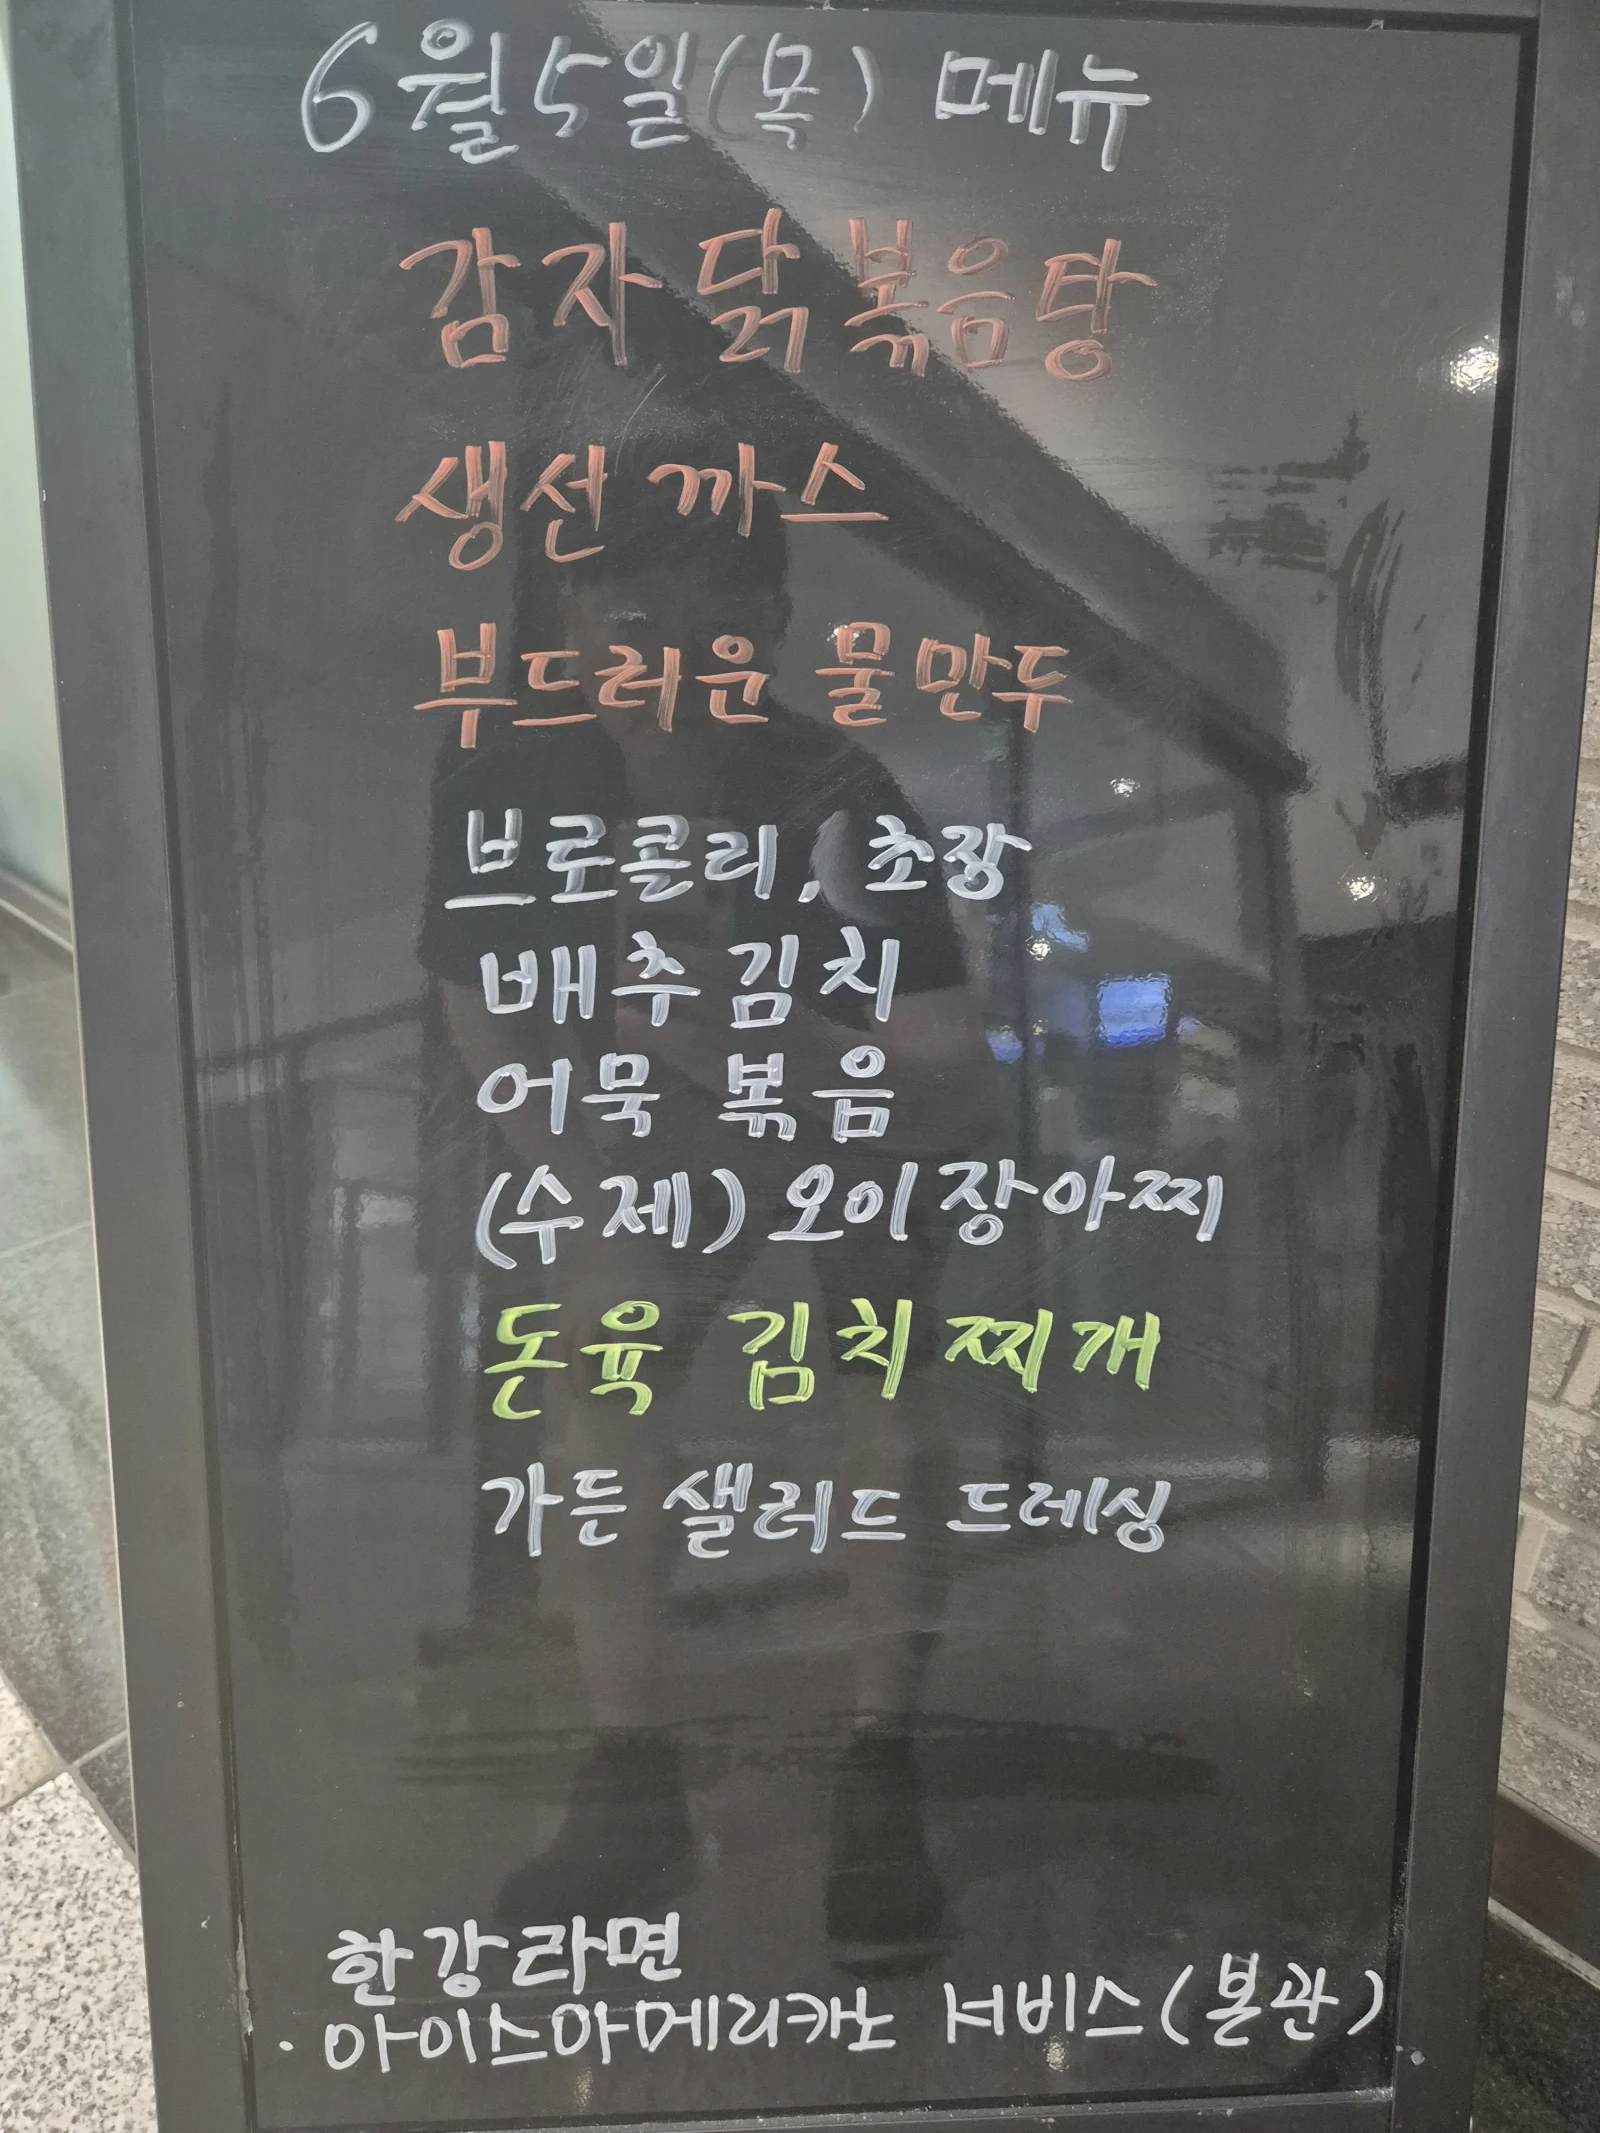 6월5일(목) 메뉴
감자 닭 볶음탕
생선 까스
부드러운 물만두
브로콜리, 초장
배추 김치
어묵 볶음
(수제) 오이 장아찌
돈육 김치찌개
가든 샐러드 드레싱
한강라면
· 아이스아메리카노 서비스(본관)